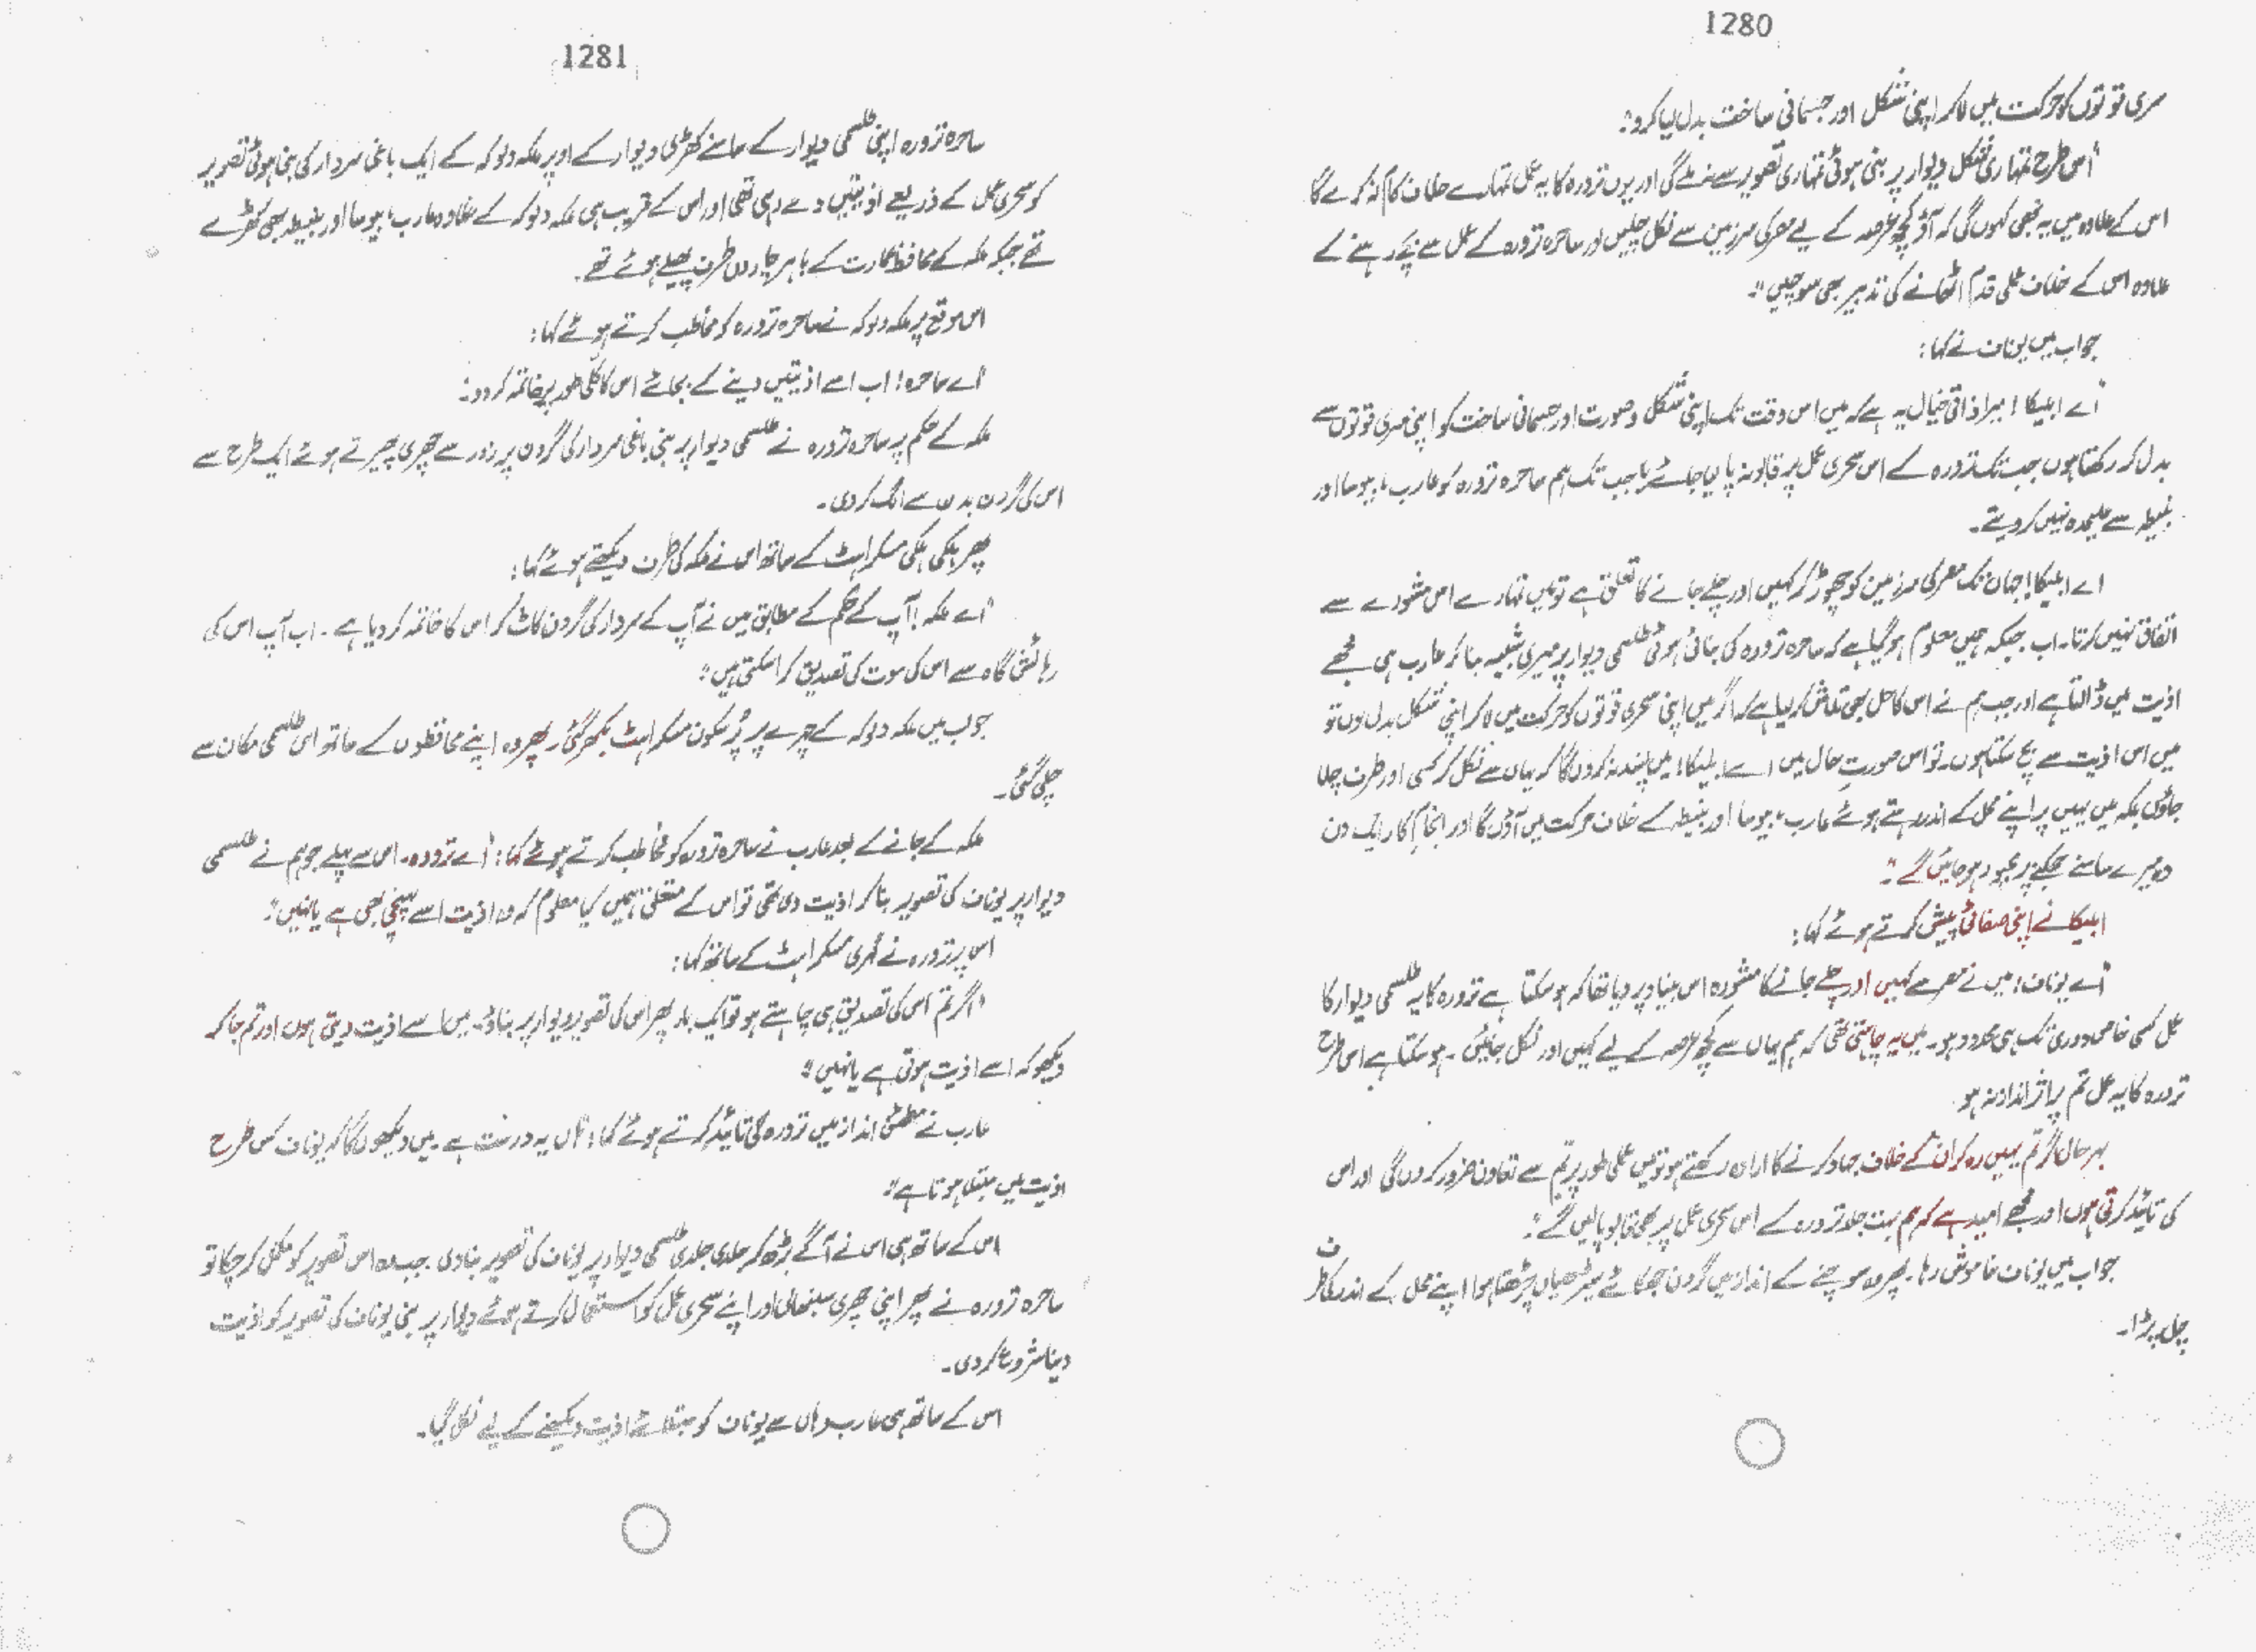 1280
سری قوتوں کو حرکت میں لا کر اپنی شکل اور جسمانی ساخت بدل لیا کرو۔"
"اس طرح تمہاری شکل دیوار پر بنی ہوئی تمہاری تصویر سے نہ ملے گی اور یوں تزورہ کا یہ عمل تمہارے خلاف کام نہ کرے گا
اس کے علاوہ میں یہ بھی کہوں گی کہ آؤ کچھ عرصہ کے لیے مصر کی سرزمین سے نکل چلیں اور ساحرہ تزورہ کے عمل سے بچے رہنے کے
علاوہ اس کے خلاف عملی قدم اٹھانے کی تدبیر بھی سوچیں۔"
جواب میں یوناف نے کہا:
"اے ابلیکا! میرا ذاتی خیال یہ ہے کہ میں اس وقت تک اپنی شکل و صورت اور جسمانی ساخت کو اپنی سری قوتوں سے
بدل کر رکھتا ہوں جب تک تزورہ کے اس سحری عمل پر قابو نہ پا لیا جائے یا جب تک ہم ساحرہ تزورہ کو عارب، بیوسا اور
نبیطہ سے علیحدہ نہیں کر دیتے۔
اے ابلیکا! جہاں تک مصر کی سرزمین کو چھوڑ کر کہیں اور چلے جانے کا تعلق ہے تو میں تمہارے اس مشورے سے
اتفاق نہیں کرتا۔ اب جبکہ ہمیں معلوم ہو گیا ہے کہ ساحرہ تزورہ کی بنائی ہوئی طلسمی دیوار پر میری شبیہہ بنا کر عارب ہی مجھے
اذیت میں ڈالتا ہے اور جب ہم نے اس کا حل بھی تلاش کر لیا ہے کہ اگر میں اپنی سحری قوتوں کو حرکت میں لا کر اپنی شکل بدل لوں تو
میں اس اذیت سے بچ سکتا ہوں۔ تو اس صورتِ حال میں اے ابلیکا! میں پسند نہ کروں گا کہ یہاں سے نکل کر کسی اور طرف چلا
جاؤں بلکہ میں یہیں پر اپنے محل کے اندر رہتے ہوئے عارب، بیوسا اور نبیطہ کے خلاف حرکت میں آؤں گا اور انجام کار ایک دن
وہ میرے سامنے جھکنے پر مجبور ہو جائیں گے۔"
ابلیکا نے اپنی صفائی پیش کرتے ہوئے کہا:
"اے یوناف! میں نے مصر سے کہیں اور چلے جانے کا مشورہ اس بنیاد پر دیا تھا کہ ہو سکتا ہے تزورہ کا یہ طلسمی دیوار کا
عمل کسی خاص دوری تک ہی محدود ہو۔ میں یہ چاہتی تھی کہ ہم یہاں سے کچھ عرصہ کے لیے کہیں اور نکل جائیں۔ ہو سکتا ہے اس طرح
تزورہ کا یہ عمل تم پر اثر انداز نہ ہو
بہر حال اگر تم یہیں رہ کر ان کے خلاف جہاد کرنے کا ارادہ رکھتے ہو تو میں عملی طور پر تم سے تعاون ضرور کروں گی اور اس
کی تائید کرتی ہوں اور مجھے امید ہے کہ ہم بہت جلد تزورہ کے اس سحری عمل پر بھی قابو پا لیں گے۔"
جواب میں یوناف خاموش رہا۔ پھر وہ سوچنے کے انداز میں گردن جھکائے سیڑھیاں چڑھتا ہوا اپنے محل کے اندر کی طرف
چل پڑا۔
1281
ساحرہ تزورہ اپنی طلسمی دیوار کے سامنے کھڑی دیوار کے اوپر ملکہ دلوکہ کے ایک باغی سردار کی بنی ہوئی تصویر
کو سحری عمل کے ذریعے اذیتیں دے رہی تھی اور اس کے قریب ہی ملکہ دلوکہ کے علاوہ عارب، بیوسا اور نبیطہ بھی کھڑے
تھے جبکہ ملکہ کے محافظ عمارت کے باہر چاروں طرف پھیلے ہوئے تھے۔
اس موقع پر ملکہ دلوکہ نے ساحرہ تزورہ کو مخاطب کرتے ہوئے کہا:
"اے ساحرہ! اب اسے اذیتیں دینے کے بجائے اس کا کلی طور پر خاتمہ کر دو۔"
ملکہ کے حکم پر ساحرہ تزورہ نے طلسمی دیوار پر بنی باغی سردار کی گردن پر زور سے چھری پھیرتے ہوئے ایک طرح سے
اس کی گردن بدن سے الگ کر دی۔
پھر ہلکی ہلکی مسکراہٹ کے ساتھ اس نے ملکہ کی طرف دیکھتے ہوئے کہا:
"اے ملکہ! آپ کے حکم کے مطابق میں نے آپ کے سردار کی گردن کاٹ کر اس کا خاتمہ کر دیا ہے۔ اب آپ اس کی
رہائش گاہ سے اس کی موت کی تصدیق کرا سکتی ہیں۔"
جواب میں ملکہ دلوکہ کے چہرے پر پُر سکون مسکراہٹ بکھر گئی۔ پھر وہ اپنے محافظوں کے ساتھ اس طلسمی مکان سے
چلی گئی۔
ملکہ کے جانے کے بعد عارب نے ساحرہ تزورہ کو مخاطب کرتے ہوئے کہا: "اے تزورہ۔ اس سے پہلے جو ہم نے طلسمی
دیوار پر یوناف کی تصویر بنا کر اذیت دی تھی تو اس کے متعلق ہمیں کیا معلوم کہ وہ اذیت اسے پہنچی بھی ہے یا نہیں۔"
اس پر تزورہ نے گہری مسکراہٹ کے ساتھ کہا:
"اگر تم اس کی تصدیق ہی چاہتے ہو تو ایک بار پھر اس کی تصویر دیوار پر بناؤ۔ میں اسے اذیت دیتی ہوں اور تم جا کر
دیکھو کہ اسے اذیت ہوتی ہے یا نہیں۔"
عارب نے مطمئن انداز میں تزورہ کی تائید کرتے ہوئے کہا: "ہاں یہ درست ہے۔ میں دیکھوں گا کہ یوناف کس طرح
اذیت میں مبتلا ہوتا ہے۔"
اس کے ساتھ ہی اس نے آگے بڑھ کر جلدی جلدی طلسمی دیوار پر یوناف کی تصویر بنا دی۔ جب وہ اس تصویر کو مکمل کر چکا تو
ساحرہ تزورہ نے پھر اپنی چھری سنبھالی اور اپنے سحری عمل کو استعمال کرتے ہوئے دیوار پر بنی یوناف کی تصویر کو اذیت
دینا شروع کر دی۔
اس کے ساتھ ہی عارب وہاں سے یوناف کو مبتلائے اذیت دیکھنے کے لیے نکل گیا۔